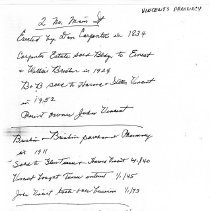 VINCENT'S PHARMACY
2 No. Main St
Erected by Dan Carpenter in 1834
Carpenter Estate sold Bldg to Ernest
& Willis Brisbin in 1924
sold to Harvey + Vincent
in 1952
Present owner John Vincent
Brisbin + Brisbin purchased Pharmacy
in 1911
Sold to + Harvey Vincent 4/1/40
Vincent bought entire 1/1/45
John Vincent took over business 1/1/73